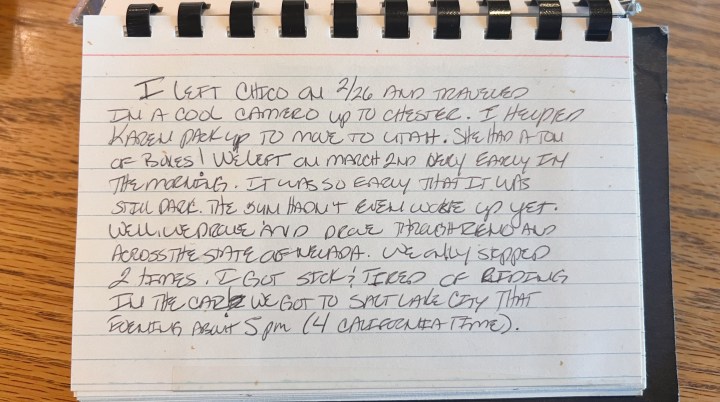 I LEFT CHICO ON 2/26 AND TRAVELED
IN A COOL CAMERO UP TO CHESTER. I HELPED
KAREN PACK UP TO MOVE TO UTAH. SHE HAD A TON
OF BOXES! WE LEFT ON MARCH 2ND VERY EARLY IN
THE MORNING. IT WAS SO EARLY THAT IT WAS
STILL DARK. THE SUN HADN'T EVEN WOKE UP YET.
WELL, WE DROVE AND DROVE THROUGH RENO AND
ACROSS THE STATE OF NEVADA. WE ONLY STOPPED
2 TIMES. I GOT SICK & TIRED OF RIDING
IN THE CAR! WE GOT TO SALT LAKE CITY THAT
EVENING ABOUT 5 pm (4 CALIFORNIA TIME).